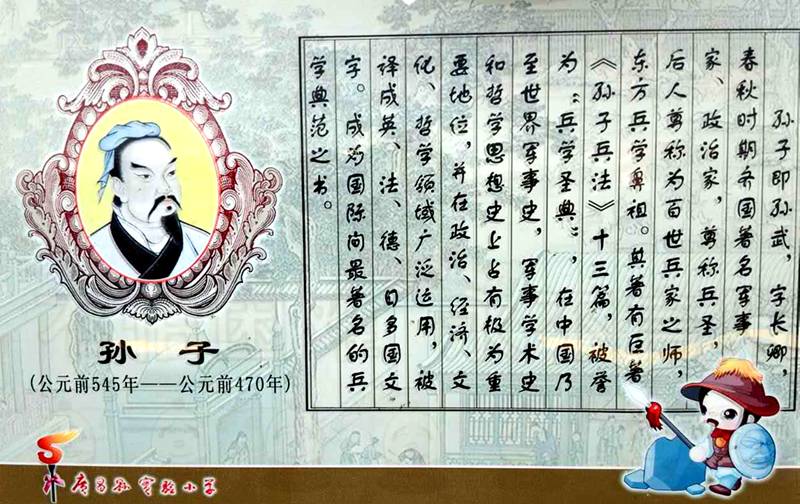 孙子即孙武，字长卿，
春秋时期齐国著名军事
家、政治家，尊称兵圣，
后人尊称为百世兵家之师，
东方兵学鼻祖。其著有巨著
《孙子兵法》十三篇，被誉
为“兵学圣典”，在中国乃
至世界军事史，军事学术史
和哲学思想史上占有极为重
要地位，并在政治、经济、文
化、哲学领域广泛运用，被
译成英、法、德、日多国文
字。成为国际间最著名的兵
学典范之书。
孙 子
(公元前545年——公元前470年)
实验小学